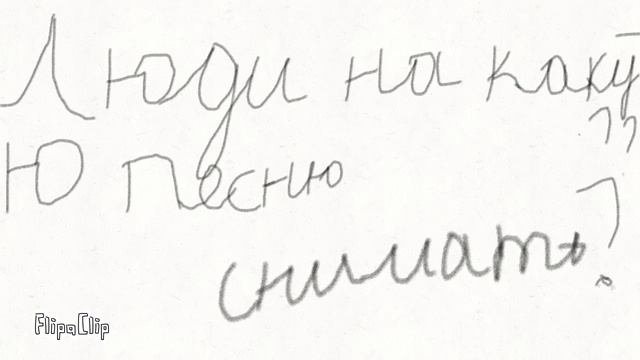 Люди на каку
ю песню ??
снимать?
FlipaClip